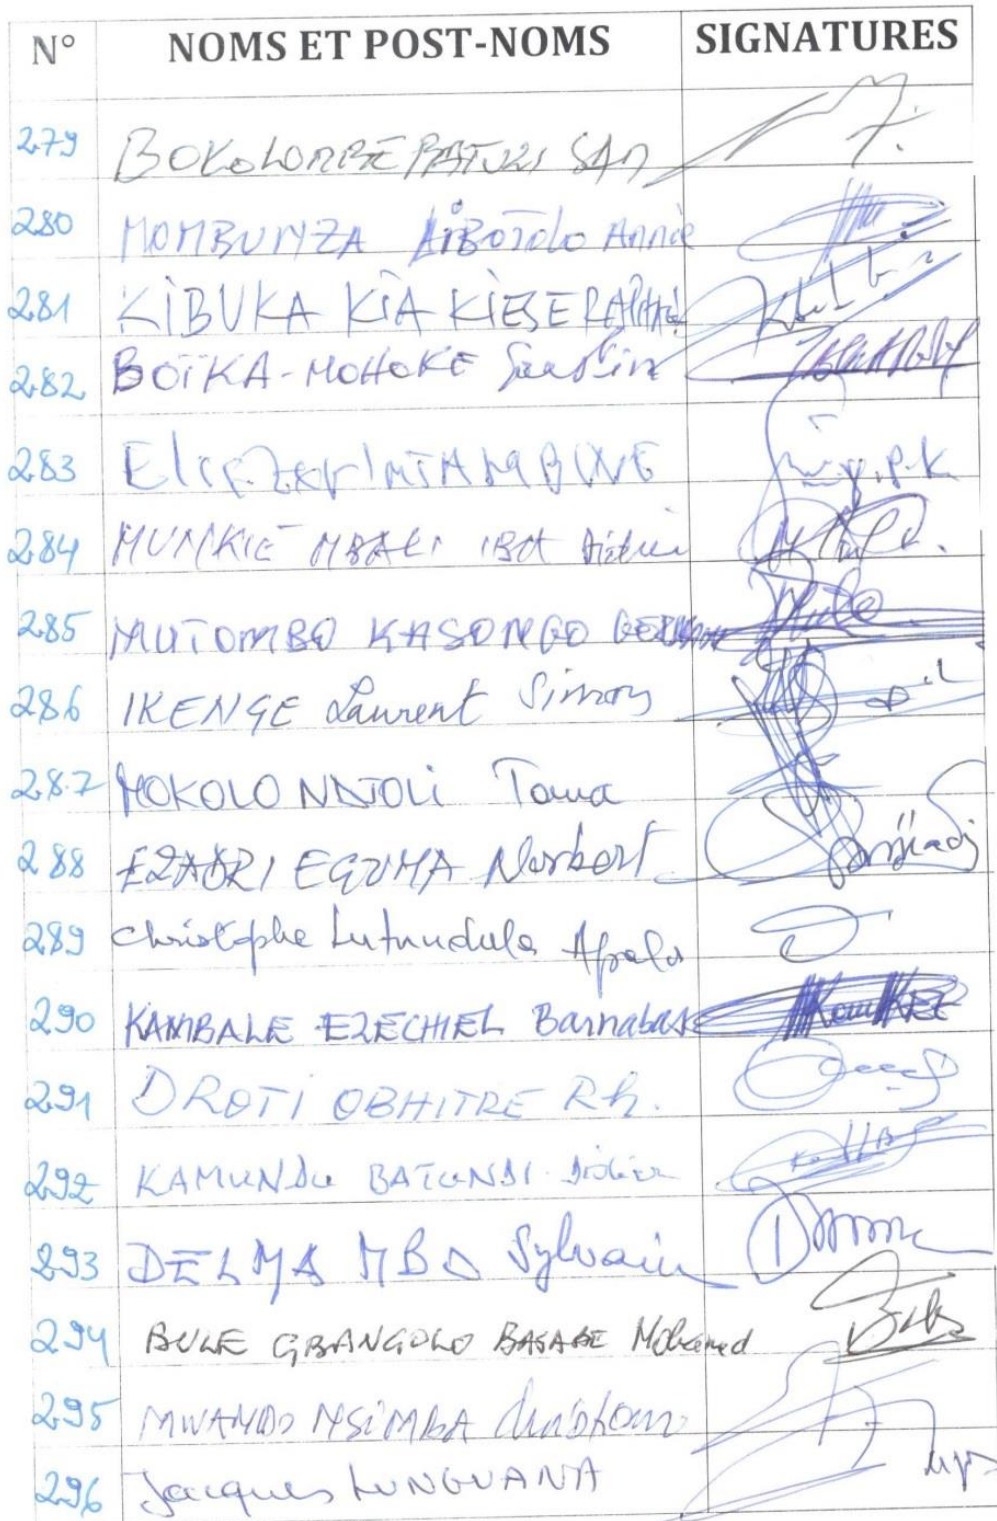 N° NOMS ET POST-NOMS SIGNATURES
279 BOKOLOMBE BATULI SAM
280 MOMBUNZA LIBOTOLO Annie
281 KIBUKA KIA KIESE RAPHAËL
282 BOÏKA-MOHOKE Faustin
283 NTAMBWE
284 MUNKIE MBALI IBA
285 MUTOMBO KASONGO GERMAIN
286 IKENGE Laurent Simon
287 MOKOLO NDJOLI Toma
288 EZADRI EGUMA Norbert
289 Christophe Lutundula Apala
290 KAMBALE EZECHIEL Barnabas
291 DROTI OBHITRE Rh.
292 KAMUNDU BATUNDI Didier
293 DELMA MBO Sylvain
294 BULE GBANGOLO BASABE Mohamed
295 NSIMBA
296 Jacques LUNGUANA